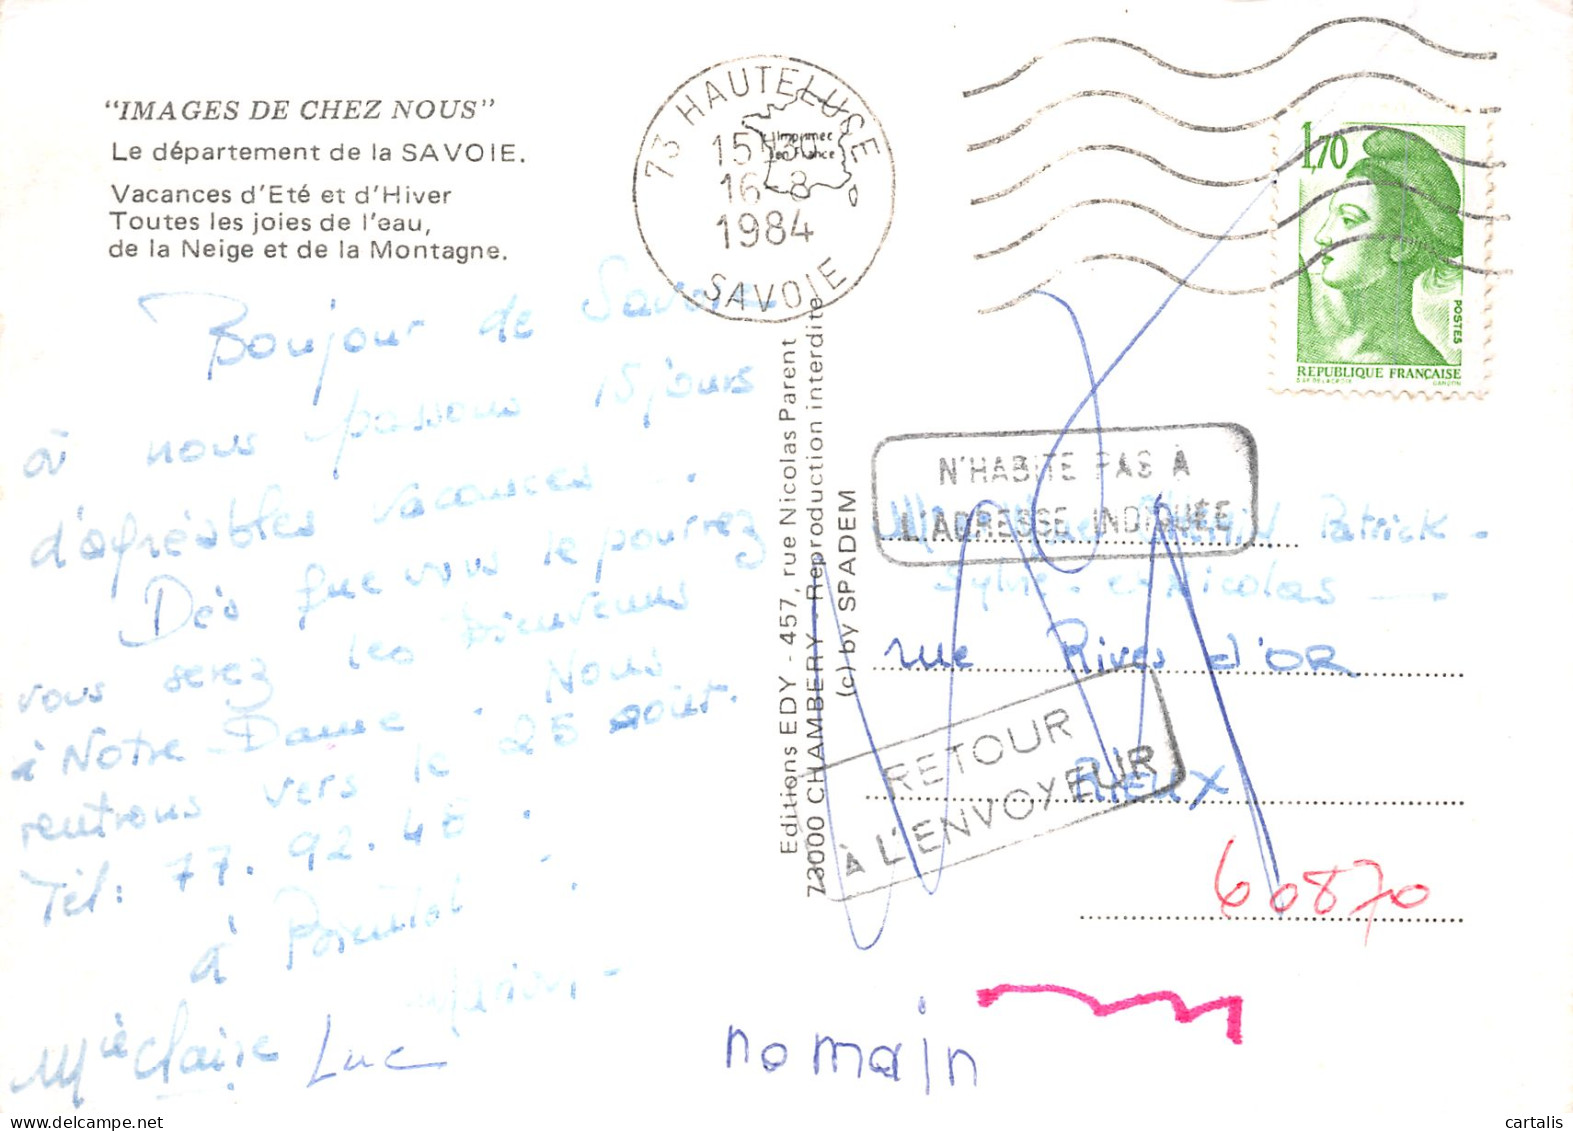 "IMAGES DE CHEZ NOUS"
Le département de la SAVOIE.
Vacances d'Eté et d'Hiver
Toutes les joies de l'eau,
de la Neige et de la Montagne.
Bonjour de Savoie
où nous passons 15 jours
d'agréables vacances.
Dès que vous le pourrez
vous serez les bienvenus
à Notre Dame. Nous
rentrons vers le 25 août.
Tél: 77.92.48.
à Bientôt
Marion,
Mie Claire Luc
romain
73 HAUTELUSE
15H30
16-8
1984
SAVOIE
Imprimé
en France
Editions EDY - 457, rue Nicolas Parent
73000 CHAMBERY - Reproduction interdite
(c) by SPADEM
1,70
POSTES
REPUBLIQUE FRANÇAISE
D'AP. DELACROIX GANDON
N'HABITE PAS A
L'ADRESSE INDIQUÉE
Patrick -
Sylvie et Nicolas
rue Rives d'OR
RIEUX
60870
RETOUR
À L'ENVOYEUR
cartalis